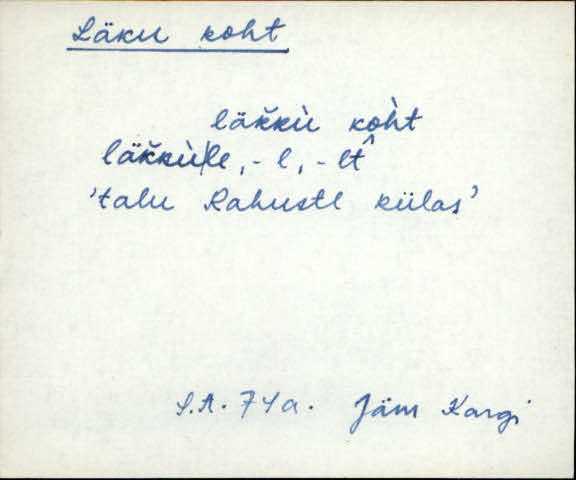 Läku koht
läk̆kù kòht
läk̆kù/le, -l, -lt̂
'talu Rahuste külas'
S.A. 74a. Jäm Kargi